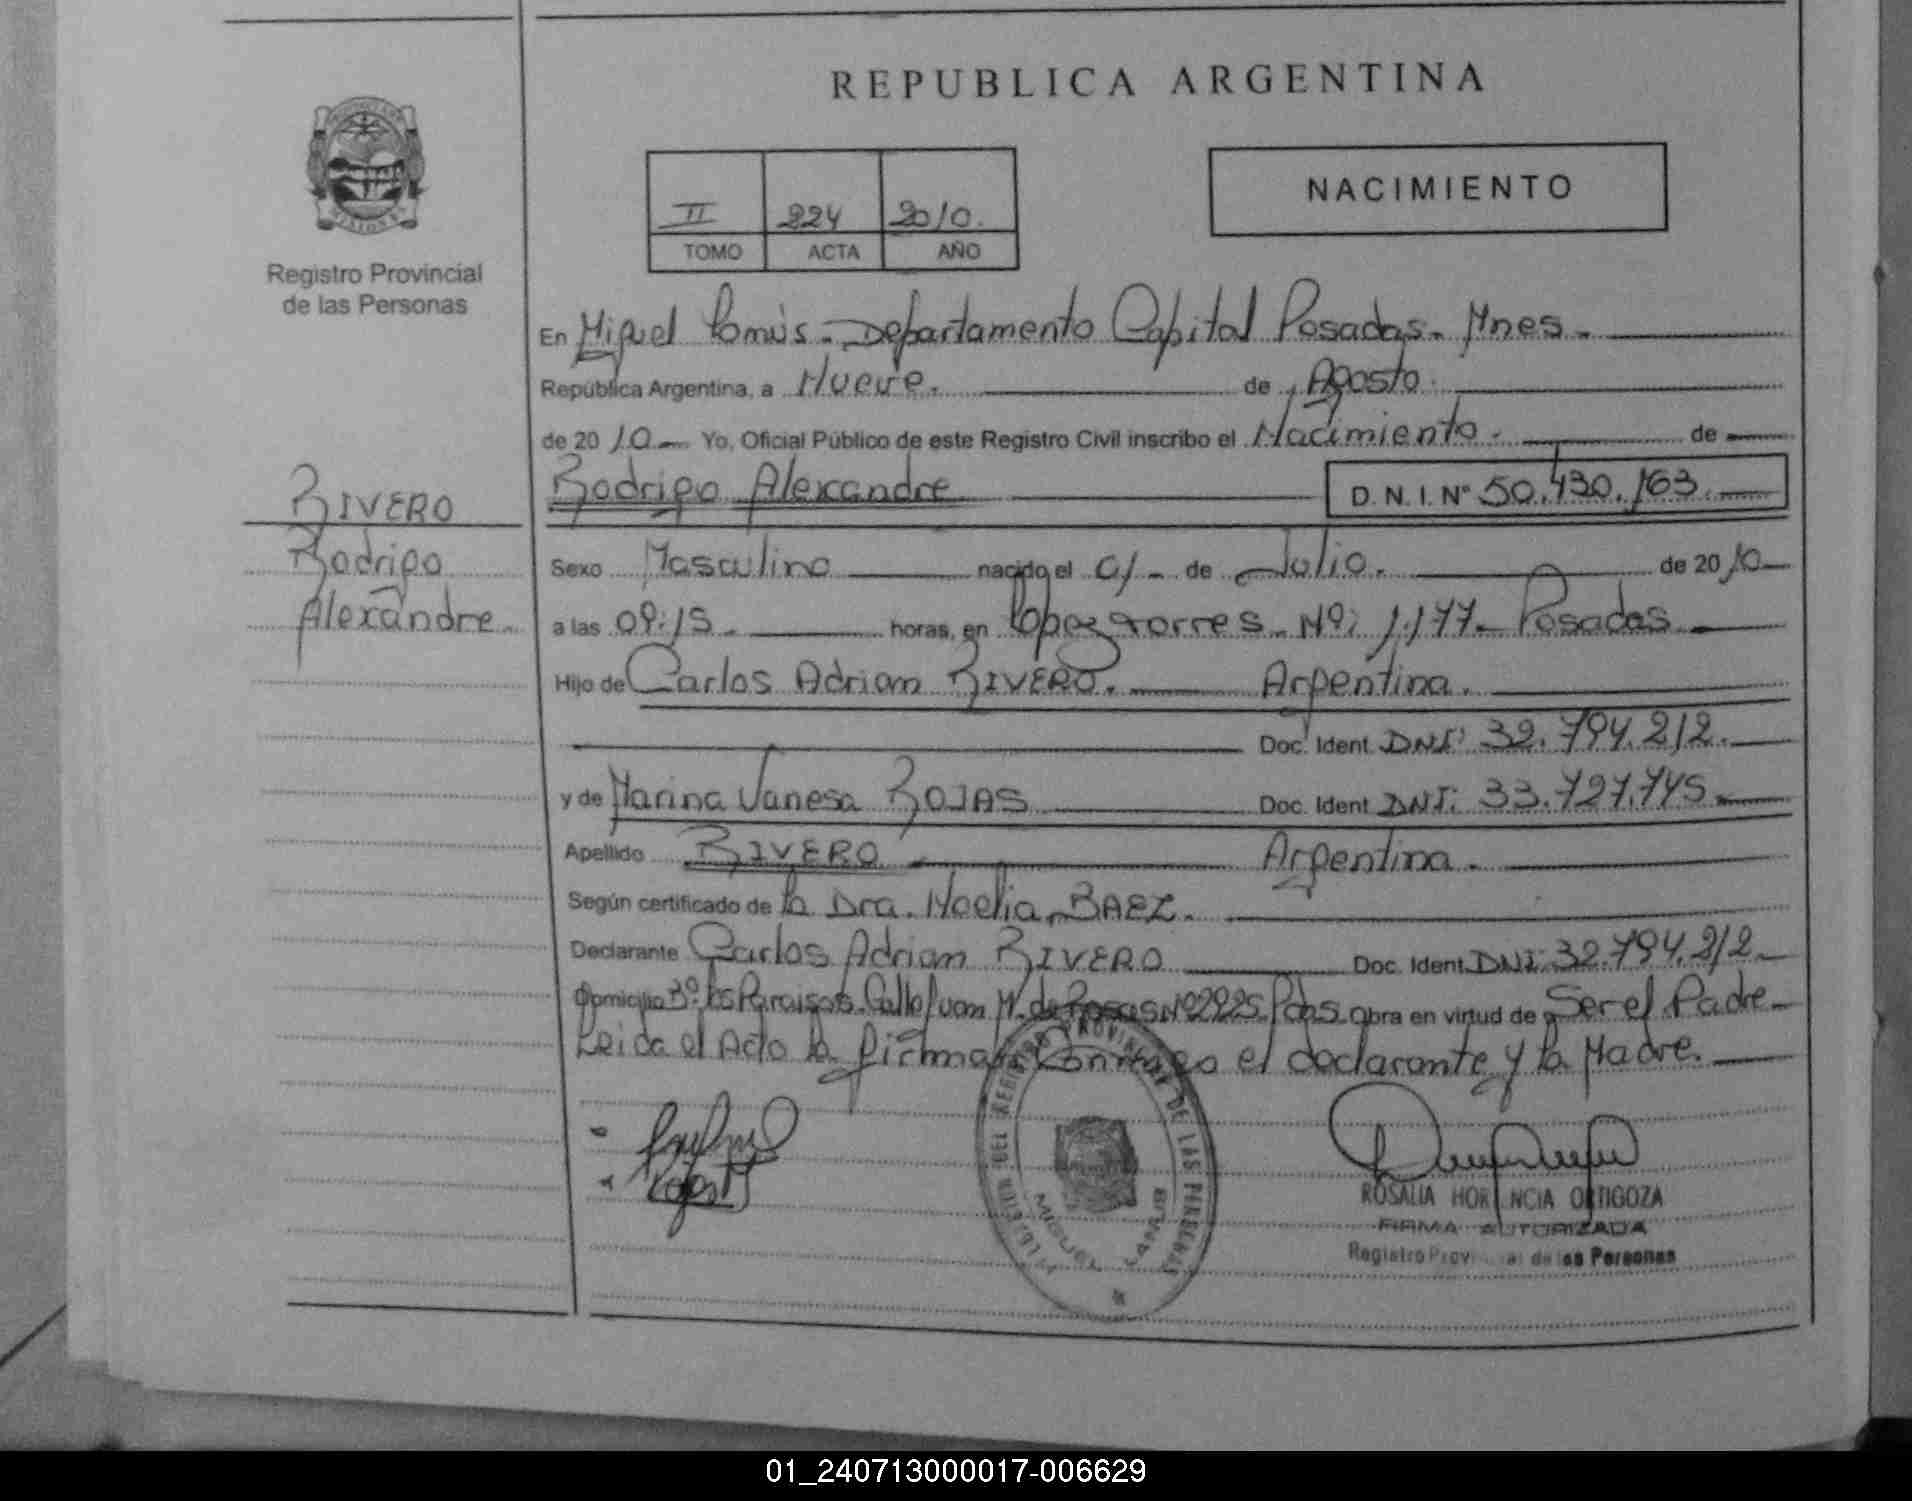 REPUBLICA ARGENTINA
II 224 2010.
TOMO ACTA AÑO
NACIMIENTO
Registro Provincial
de las Personas
En Miguel Lanús - Departamento Capital Posadas - Mnes -
República Argentina, a Nueve. de Agosto.
de 2010 Yo, Oficial Público de este Registro Civil inscribo el Nacimiento - de
Rodrigo Alexandre D.N.I. Nº 50.430.163
RIVERO
Rodrigo
Alexandre
Sexo Masculino nacido el 01 - de Julio. de 2010
a las 09:15 horas, en Lopez Torres - Nº: 1.177 - Posadas
Hijo de Carlos Adrian RIVERO. Argentina.
Doc. Ident. DNI: 32.794.212.
y de Marina Vanesa ROJAS Doc. Ident. DNI: 33.727.745
Apellido RIVERO Argentina.
Según certificado de la Dra. Noelia BAEZ.
Declarante Carlos Adrian RIVERO Doc. Ident. DNI: 32.794.212
Domicilio Bº Los Paraisos. Calle Juan M. de Rosas Nº 2925 Pdas. obra en virtud de Ser el Padre
Leida el Acta la firman Conmigo el declarante y la Madre.
DEL REGISTRO PROVINCIAL DE LAS PERSONAS
MIGUEL LANUS
ROSALIA HORTENCIA ORTIGOZA
FIRMA AUTORIZADA
Registro Provincial de las Personas
01_240713000017-006629